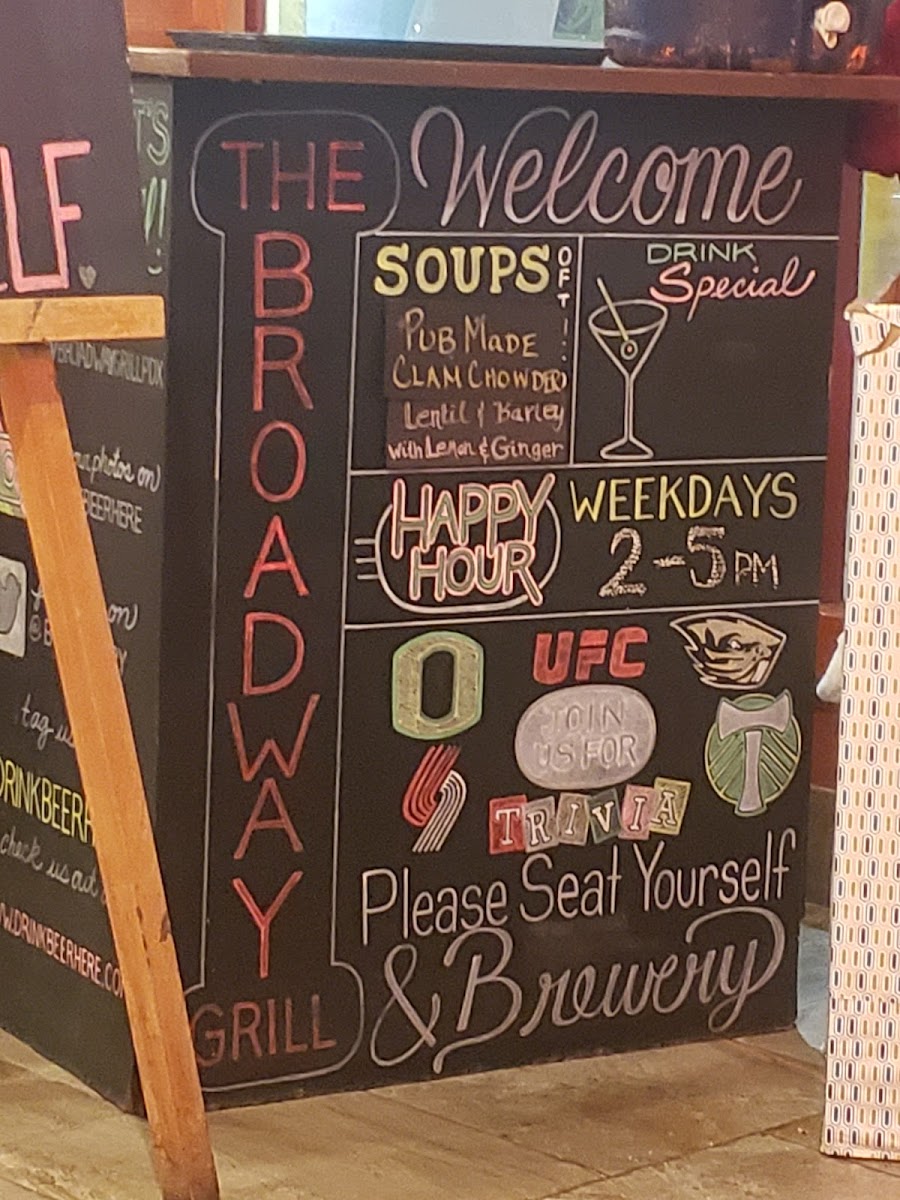 LF
T'S
Y!
BROADWAYGRILLPDX
photos on
BEERHERE
on
tag us
DRINKBEER
check us out
WWW.DRINKBEERHERE.CO
THE
BROADWAY
GRILL
Welcome
SOUPS
OF T
PUB MADE
CLAM CHOWDER
Lentil & Barley
with Lemon & Ginger
DRINK
Special
HAPPY
HOUR
WEEKDAYS
2-5 PM
O
UFC
JOIN
US FOR
TRIVIA
T
Please Seat Yourself
& Brewery